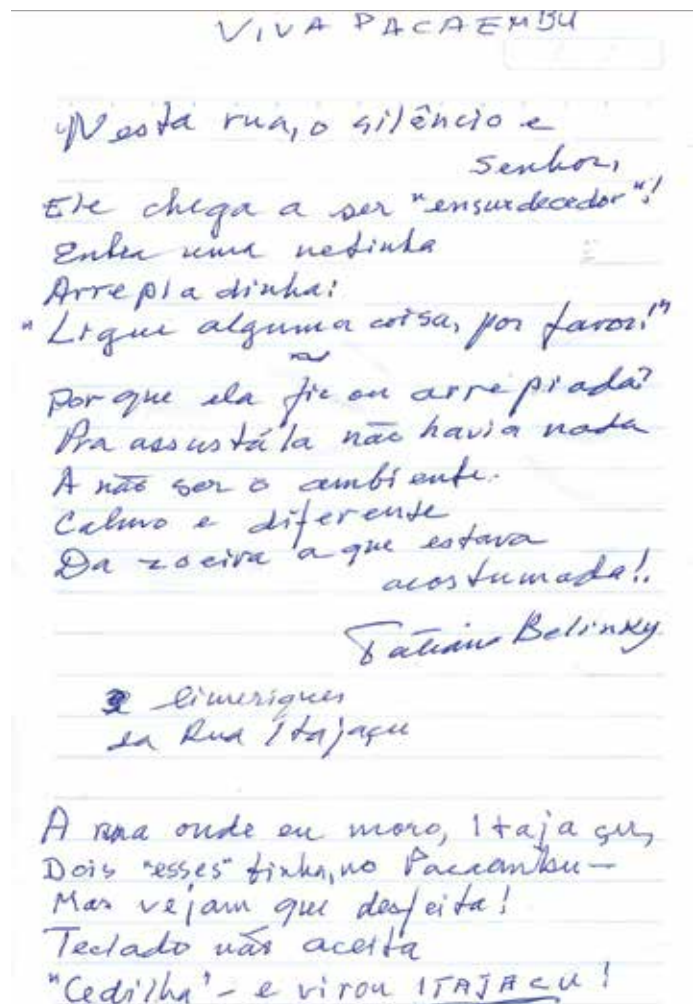 VIVA PACAEMBU
Nesta rua, o silêncio e
Senhor,
Ele chega a ser "ensurdecedor"!
Entra uma netinha
Arrepiadinha:
"Ligue alguma coisa, por favor!"
~
Por que ela ficou arrepiada?
Pra assustá la não havia nada
A não ser o ambiente.
Calmo e diferente
Da zoeira a que estava
acostumada!.
Tatiana Belinky
2 limeriques
da Rua Itajaçu
A rua onde eu moro, Itajaçu,
Dois "esses" tinha, no Pacaembu—
Mas vejam que desfeita!
Teclado não aceita
"Cedilha' - e virou ITAJACU!